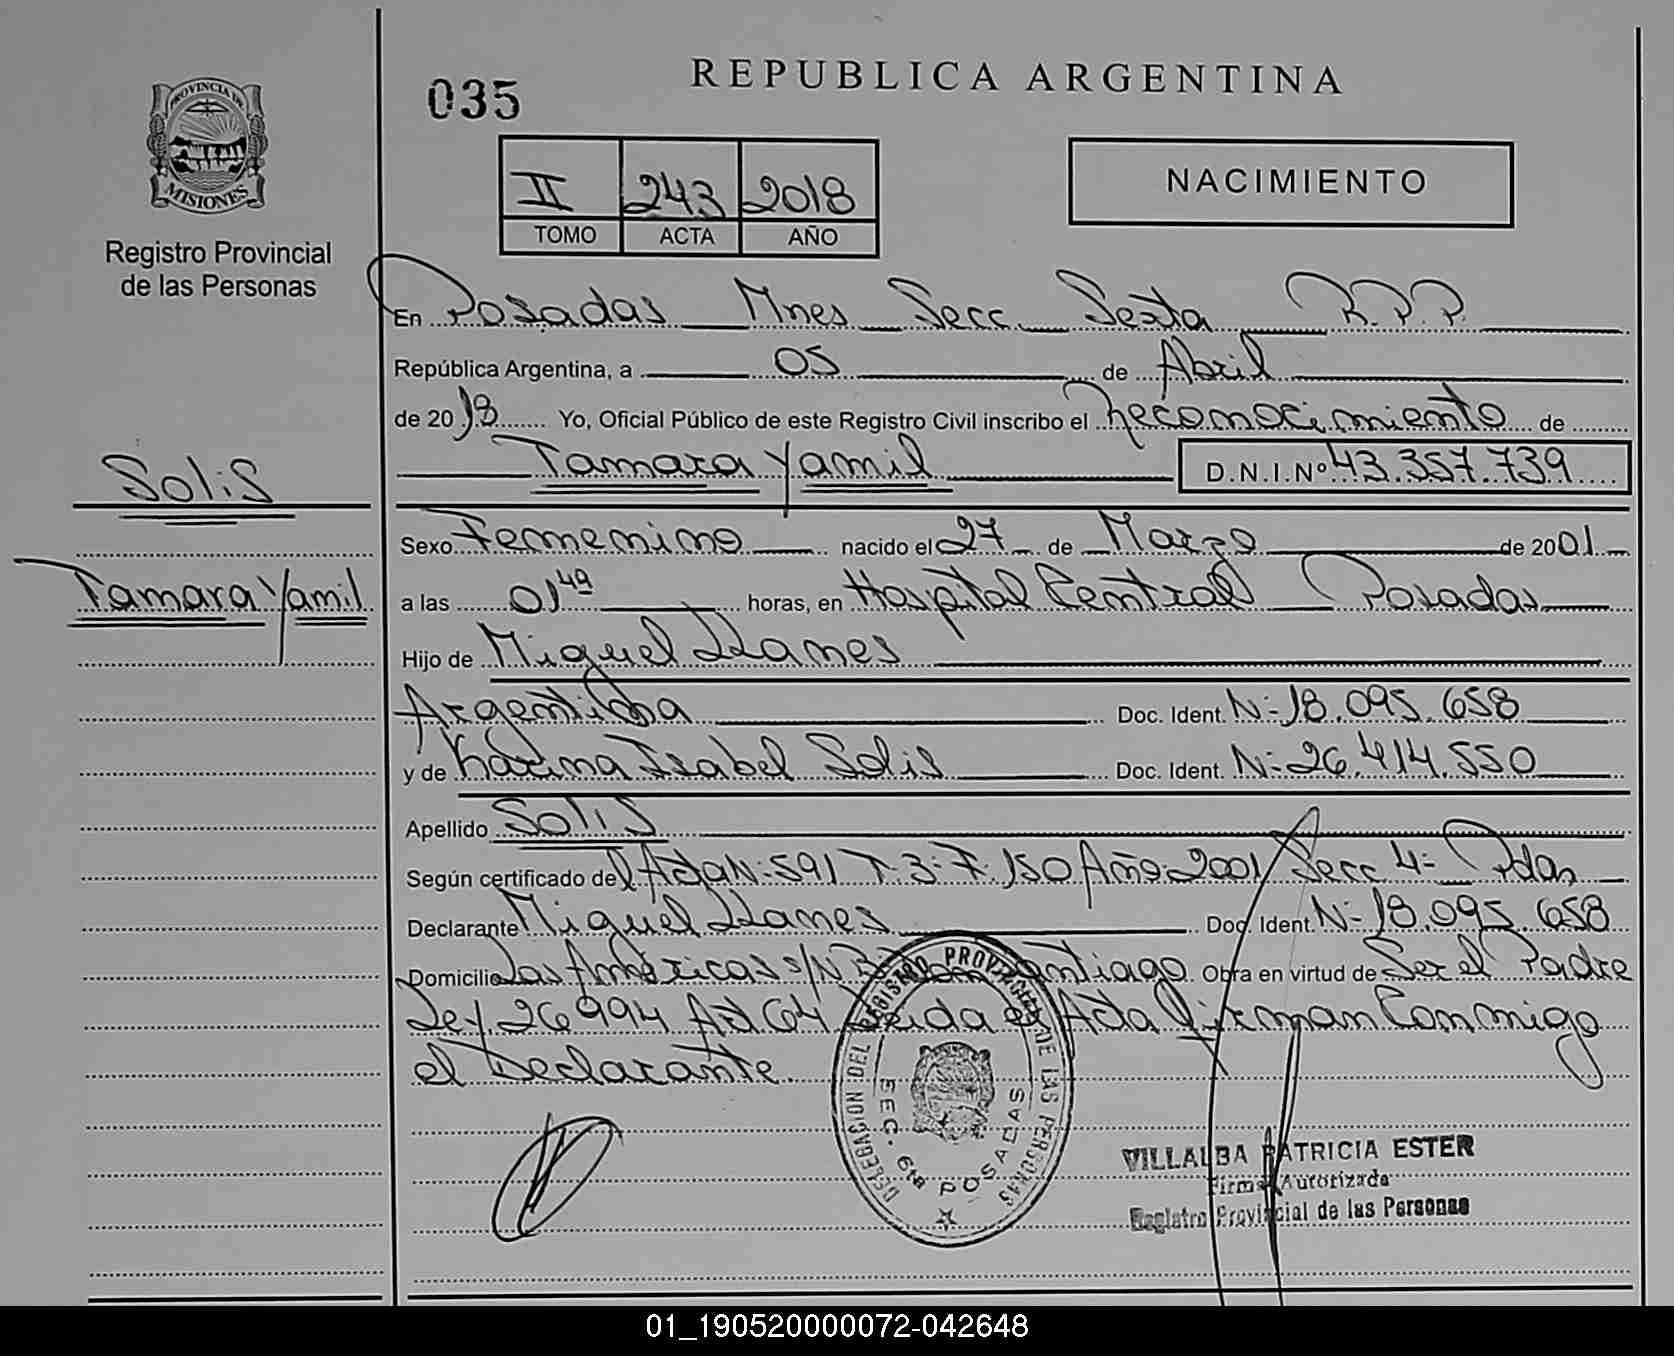 PROVINCIA DE
MISIONES
Registro Provincial
de las Personas
Solis
Tamara Yamil
035
REPUBLICA ARGENTINA
II 243 2018
TOMO ACTA AÑO
NACIMIENTO
En Posadas Mnes Secc. Sexta R.P.P.
República Argentina, a 05 de Abril
de 2018 Yo, Oficial Público de este Registro Civil inscribo el Reconocimiento de
Tamara Yamil D.N.I.Nº 43.357.739
Sexo Femenino nacido el 27 de Marzo de 2001
a las 01 horas, en Hospital Central Posadas
Hijo de Miguel Llanes
Argentina Doc. Ident. Nº 18.095.658
y de Karina Isabel Solis Doc. Ident. Nº 26.414.550
Apellido Solis
Según certificado del Acta Nº 591 T. 3º F. 150 Año 2001 Secc 4º Pdas
Declarante Miguel Llanes Doc. Ident. Nº 18.095.658
Domicilio Las Américas s/N Santiago Obra en virtud de Ser el Padre
Ley 26994 Art 64 Leida el Acta firman Conmigo
el Declarante.
DELEGACION DEL REGISTRO PROVINCIAL DE LAS PERSONAS
SEC. 6ta POSADAS
VILLALBA PATRICIA ESTER
Firma Autorizada
Registro Provincial de las Personas
01_190520000072-042648